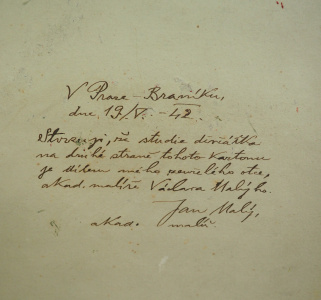 V Praze - Braníku,
dne 19/V. - 42.
Stvrzuji, že studie děvčátka
na druhé straně tohoto kartonu
je dílem mého zesnulého otce,
akad. malíře Václava Malého.
Jan Malý,
akad. malíř